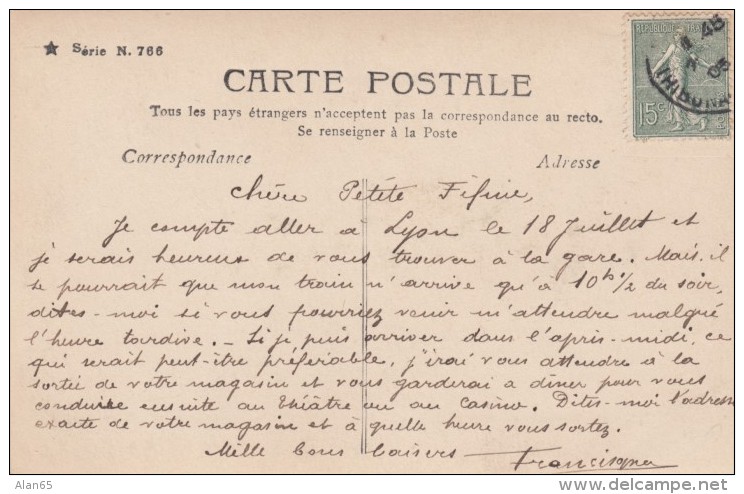 ★ Série N. 766
CARTE POSTALE
Tous les pays étrangers n'acceptent pas la correspondance au recto.
Se renseigner à la Poste
Correspondance Adresse
REPUBLIQUE FRANÇAISE
45
05
TRIBUNA
15c
Chère Petite Fifine,
Je compte aller à Lyon le 18 Juillet et
je serais heureux de vous trouver à la gare. Mais il
se pourrait que mon train n'arrive qu'à 10h 1/2 du soir,
dites-moi si vous pourriez venir m'attendre malgré
l'heure tardive. – Si je puis arriver dans l'après-midi, ce
qui serait peut-être préférable, j'irai vous attendre à la
sortie de votre magasin et vous garderai a diner pour vous
conduire ensuite au théâtre ou au Casino. Dites-moi l'adresse
exacte de votre magasin et à quelle heure vous sortez.
Mille bons baisers —
Alan65
www.delcampe.net